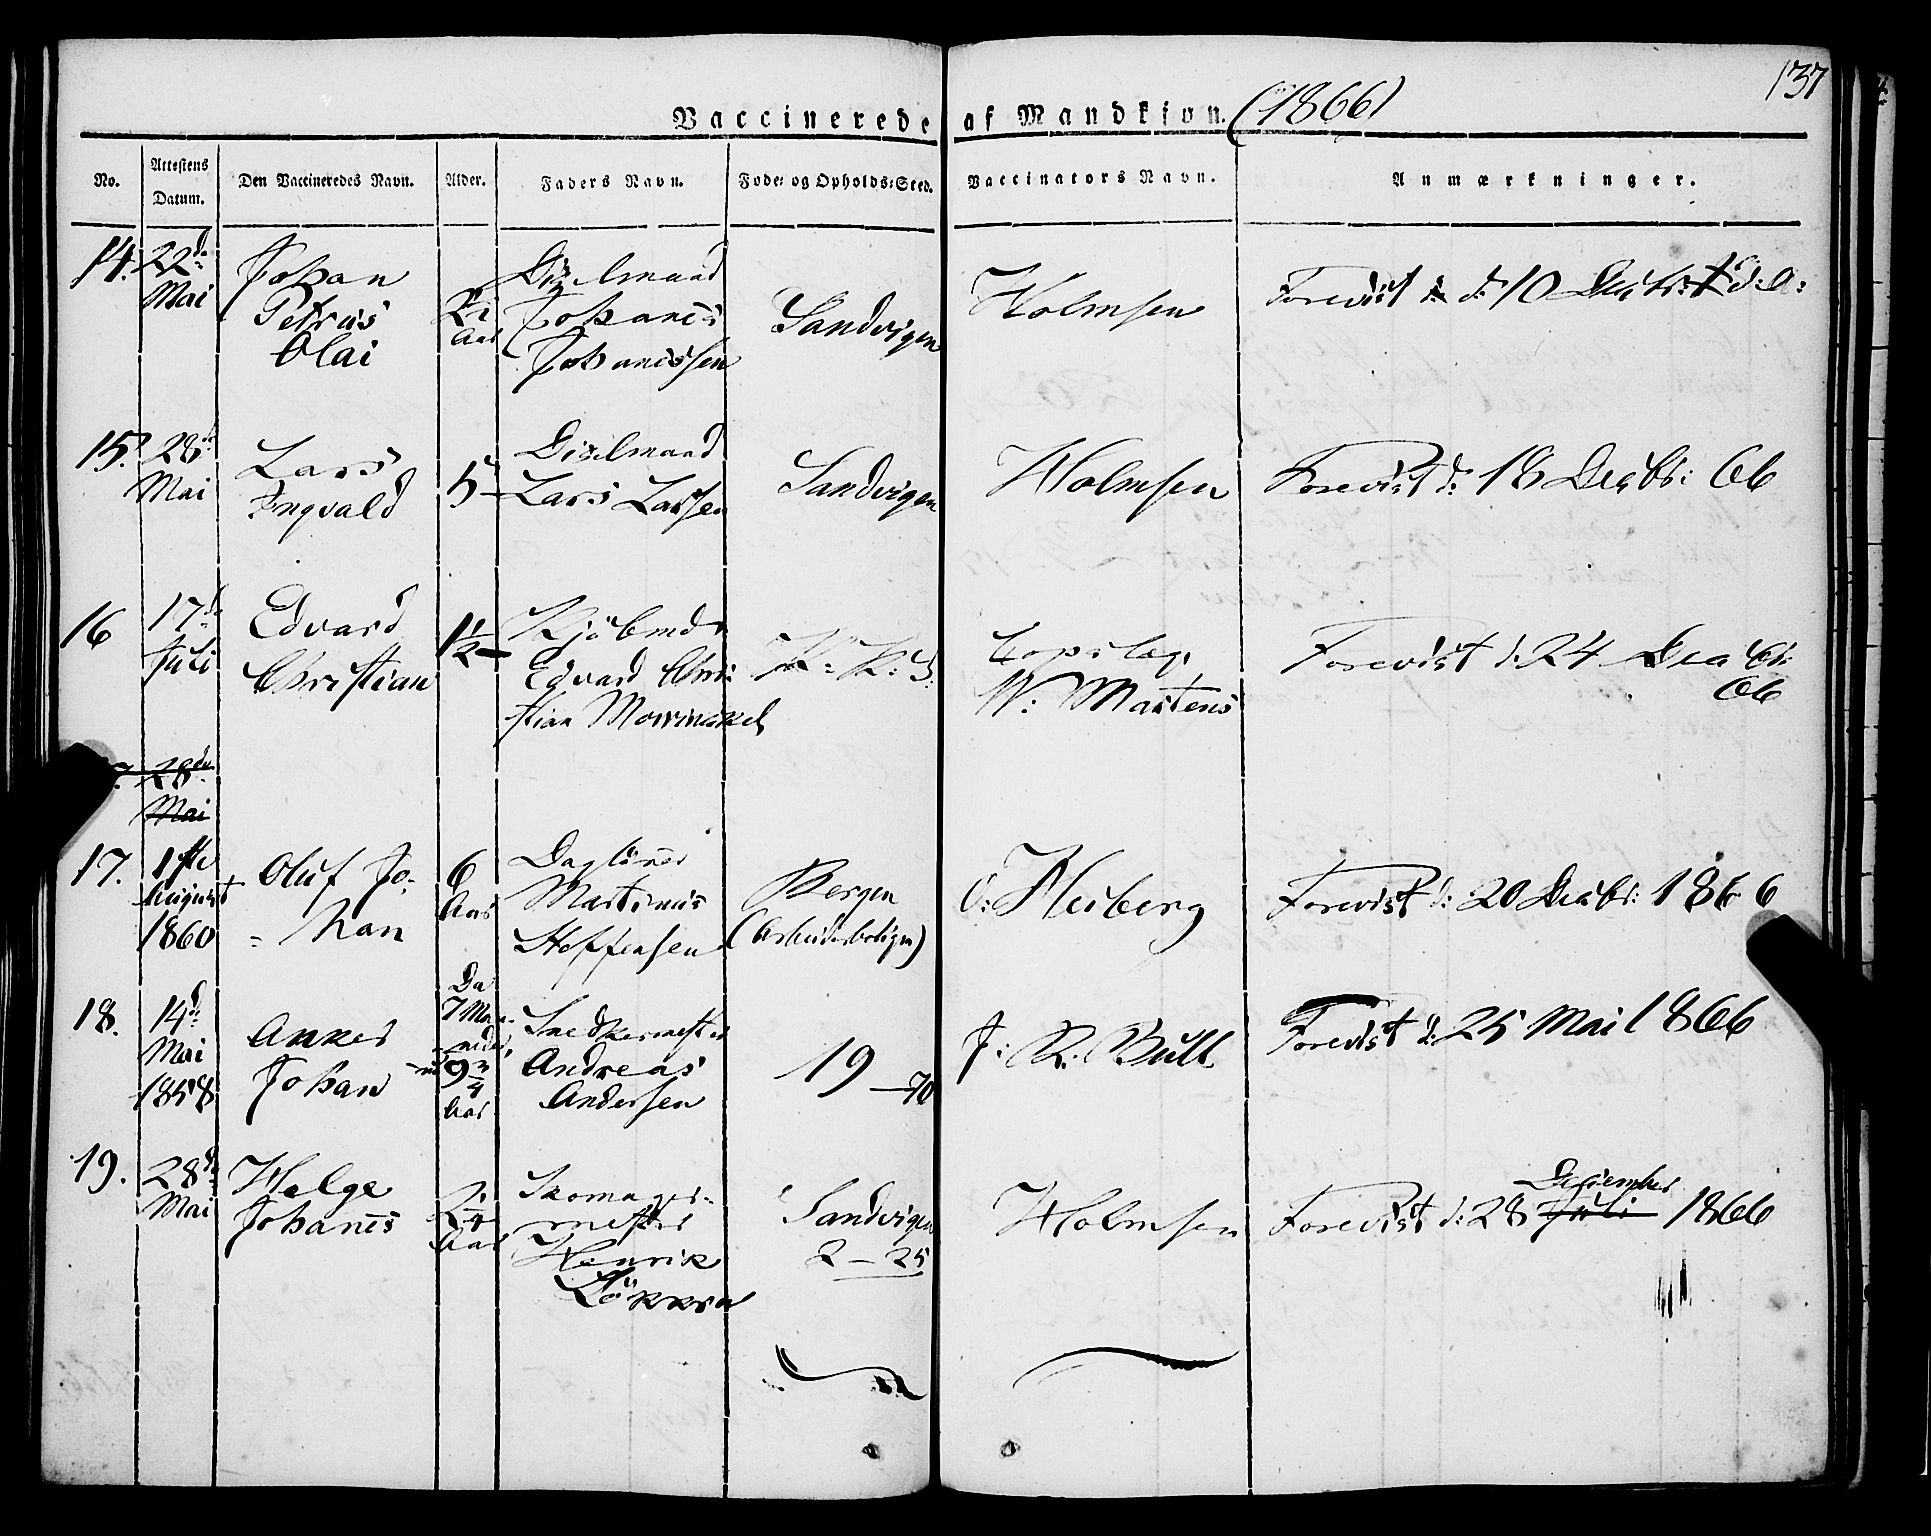 137
Vaccinerede af Mandkjøn. (1866)
No.
Attestens Datum.
Den Vaccineredes Navn.
Alder.
Faders Navn.
Føde- og Opholds-Sted.
Vaccinators Navn.
Anmærkninger.
14.
22de
Mai
Johan
Petrus
Olai
Aar
Diselmand
Johanes
Johanessen
Sandvigen
Holmsen
Forevist d: 10 Decbr:
15.
28de
Mai
Lars
Ingvald
5
Diselmand
Lars Larsen
Sandvigen
Holmsen
Forevist d: 18 Decbr: 66
16
17de
Juli
Edvard
Christian
1 1/2
Kjöbmd
Edvard Chri-
stian Mowinckel
K: K: S:
W: Martens
Forevist d: 24 Decbr:
66
28de
Mai
17.
1ste
August
1860
Oluf Jo-
= han
6
Aar
Daglöner
Martinus
Steffensen
Bergen
(Arbeiderboliger)
O: Heiberg
Forevist d: 20 Decbr: 1866
18.
14de
Mai
1858
Anker
Johan
Da
7 Maa-
neder,
nu 9 3/4
Aar
Snedkermester
Andreas
Andersen
19 — 70
J: R. Bull
Forevist d: 25 Mai 1866
19.
28de
Mai
Helge
Johanes
2 1/4
Aar
Skomager-
mester
Henrik
Lökken
Sandvigen
2 — 25
Holmsen
December
Forevist d: 28 Juli 1866